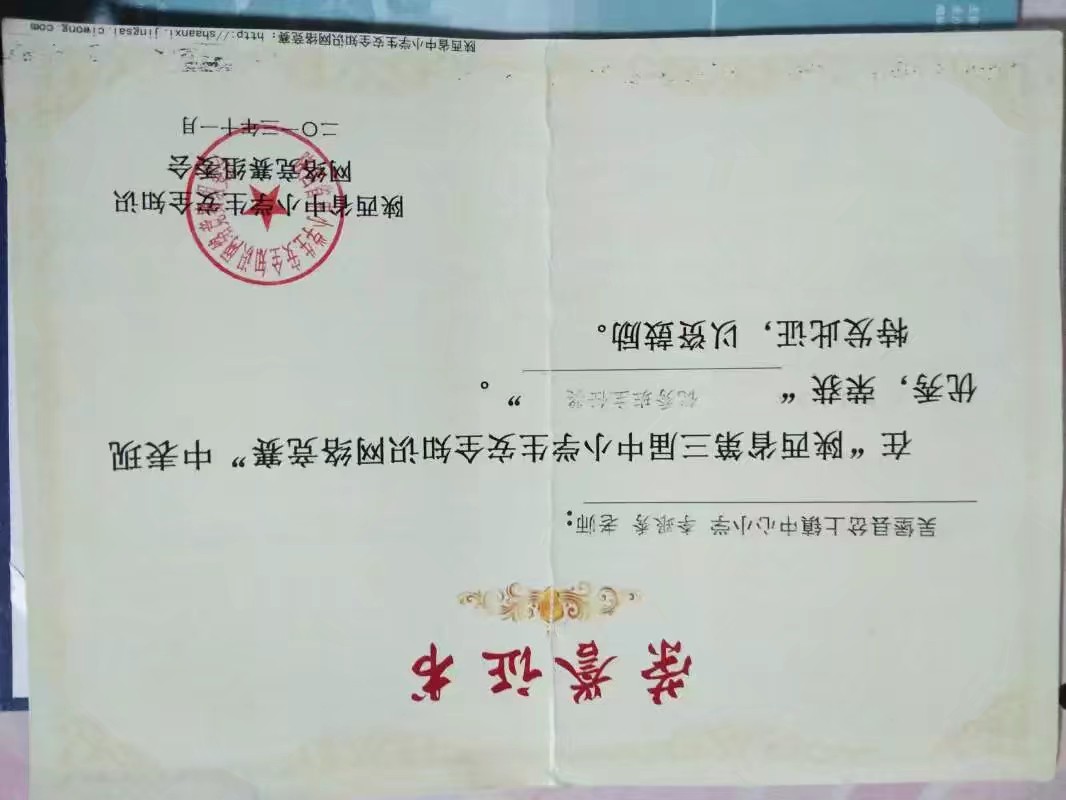 荣誉证书
吴堡县岔上镇中心小学 李翠秀 老师:
在“陕西省第三届中小学生安全知识网络竞赛”中表现
优秀,荣获“优秀班主任奖”。
特发此证,以资鼓励。
陕西省中小学生安全知识
网络竞赛组委会
二〇一三年十一月
陕西省中小学生安全知识网络竞赛:http://shaanxi.jingsai.ciwong.com